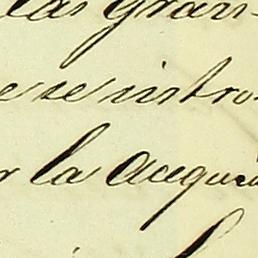 las gran-
e se intro-
r la acequia